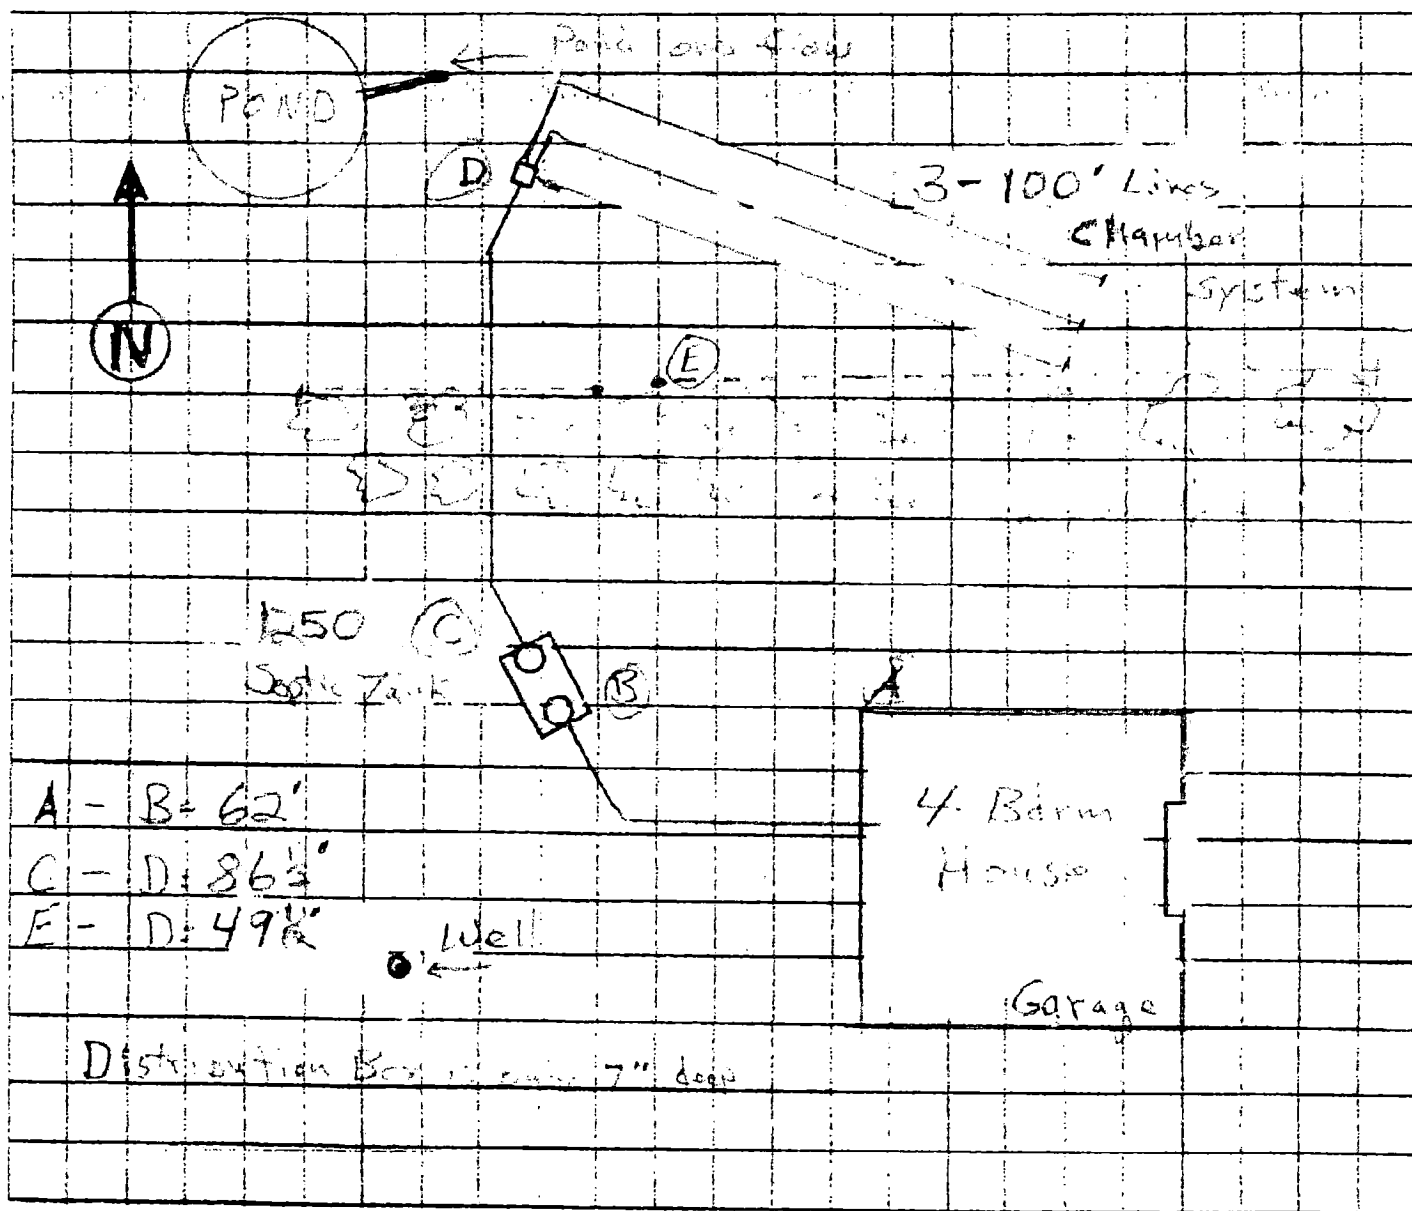 Pond over flow
POND
D
3-100' Lines
CHamber
System
N
E
1250
C
Septic Tank
B
A
4-Bdrm
House
A - B = 62'
C - D = 86½'
E - D = 49½'
Well
Garage
Distribution Box 7" deep